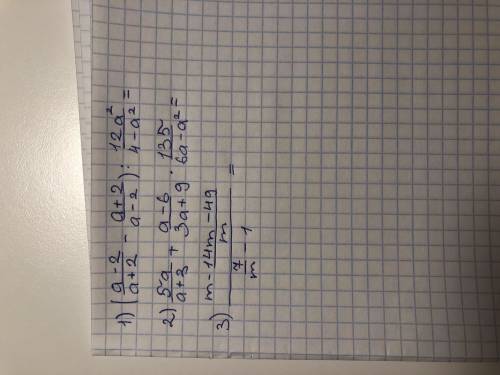 1) (a-2/a+2 - a+2/a-2) : 12a²/4-a² =
2) 5a/a+3 + a-6/3a+9 · 135/6a-a² =
3) m - 14m-49/m / 7/m - 1 =